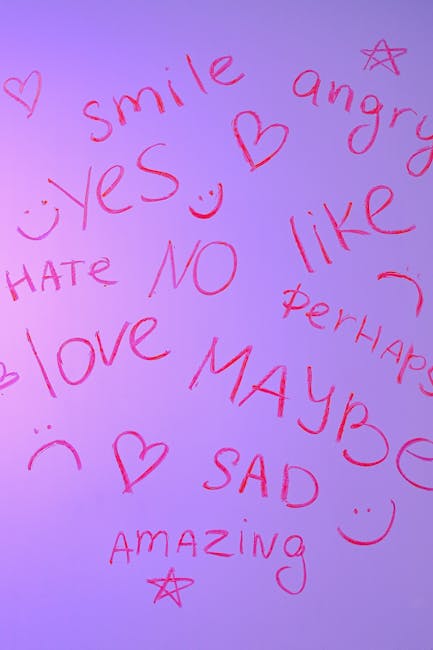 smile angry
yes
like
HATe NO
perhaps
love
MAYBe
SAD
AmAZiNg